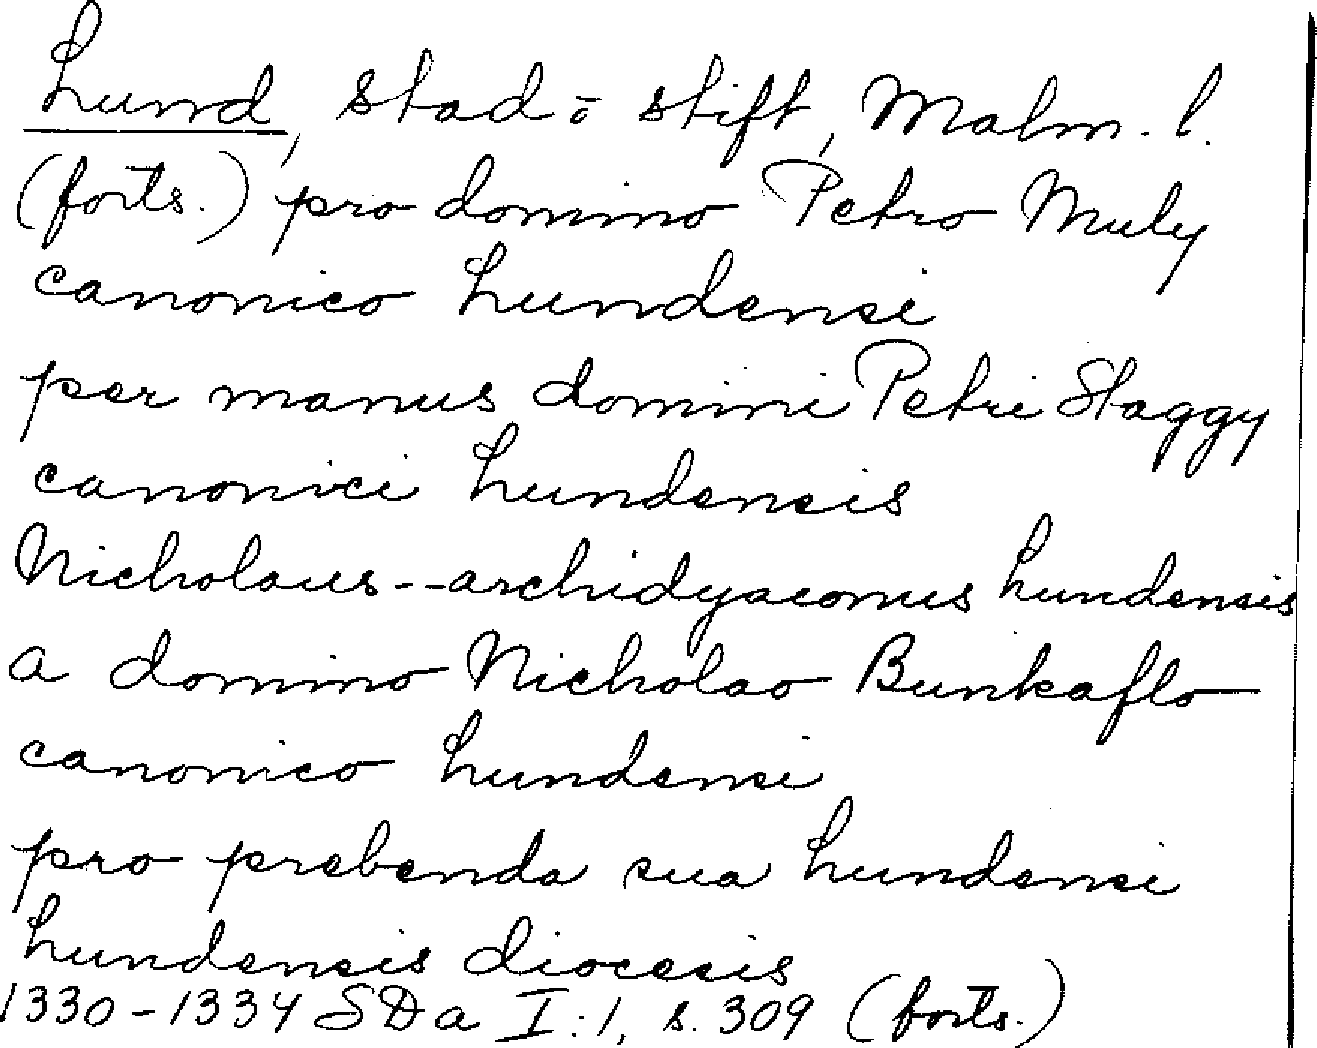 Lund, stad ō stift, Malm. l.
(forts.) pro domino Petro Muly
canonico Lundensi
per manus domini Petri Staggy
canonici Lundensis
Nicholaus--archidyaconus Lundensis
a domino Nicholao Bunkaflo
canonico Lundensi
pro prebenda sua Lundensi
Lundensis diocesis
1330-1334 SDa I:1, s. 309 (forts.)